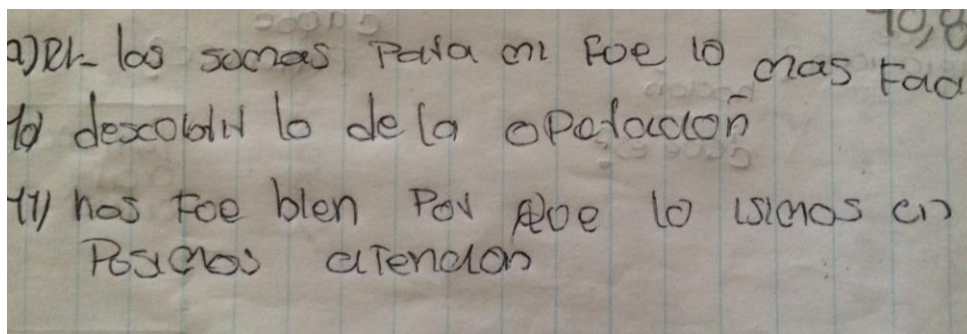 10,8
9) R/- las somas Para mi Foe lo mas Facil
10) descobrir lo de la oPeración
11) nos Foe bien Por Qoe lo isimos en
Posimos atencion